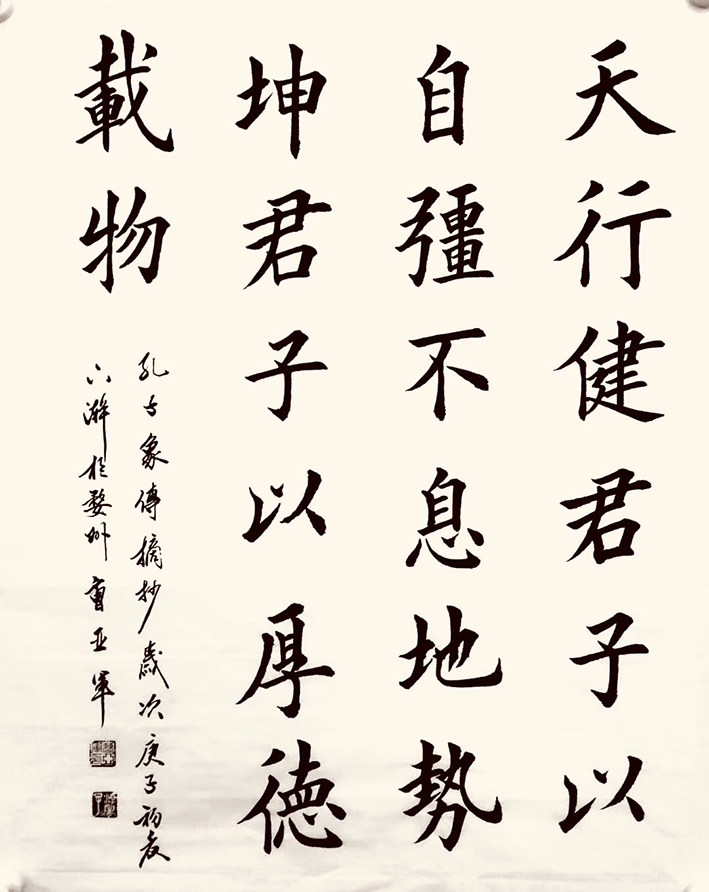 天行健君子以
自彊不息地勢
坤君子以厚德
載物
孔子象傳摘抄歲次庚子初夏
於婺州曹亞軍